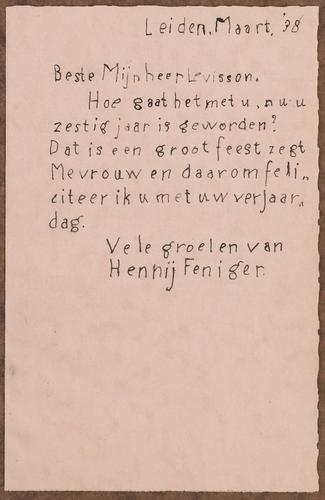 Leiden, Maart, '38
Beste Mijnheer Levisson.
Hoe gaat het met u, nu u
zestig jaar is geworden?
Dat is een groot feest zegt
Mevrouw en daarom feli„
citeer ik u met uw verjaar„
dag.
Vele groeten van
Hennij Feniger.